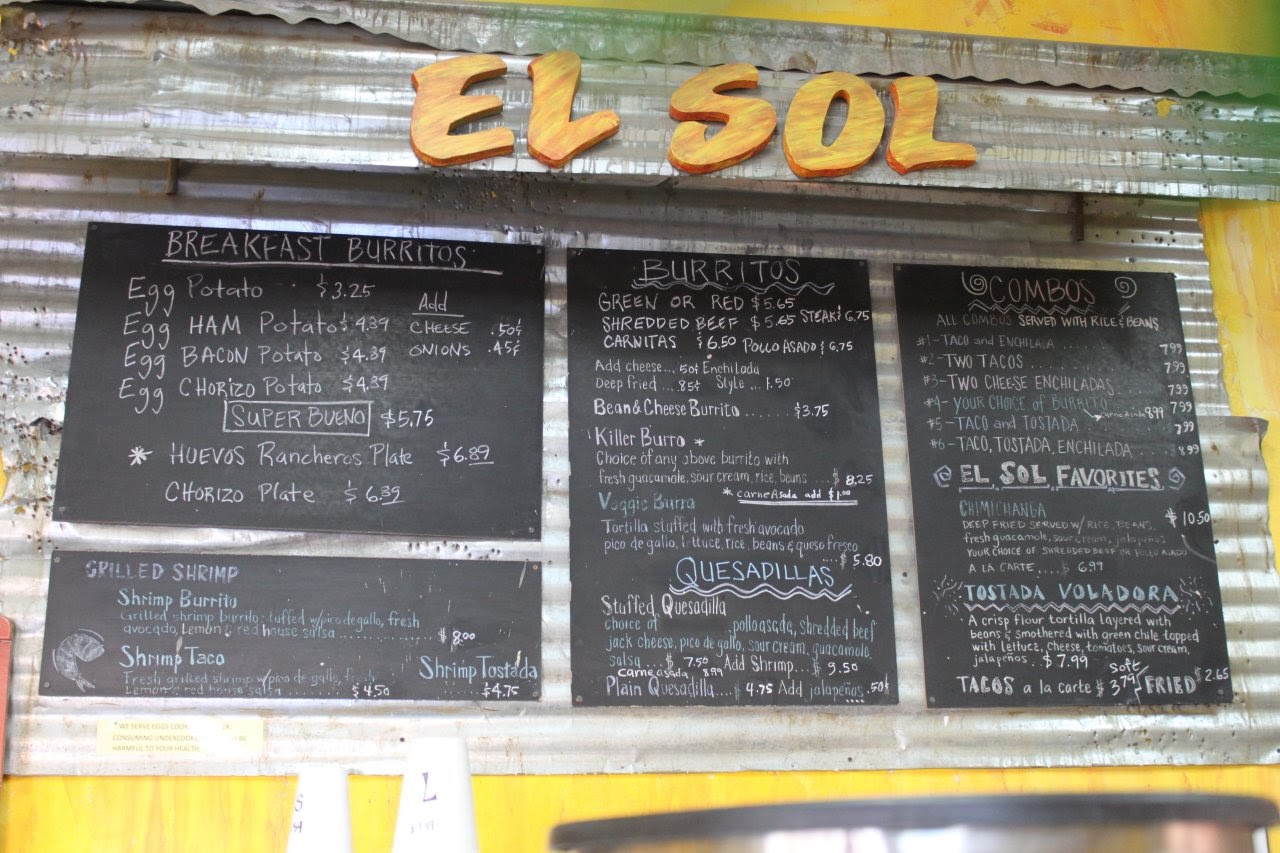 EL SOL
BREAKFAST BURRITOS
Egg Potato $3.25
Egg HAM Potato $4.39
Egg BACON Potato $4.39
Egg CHORIZO Potato $4.39
Add
CHEESE .50¢
ONIONS .45¢
SUPER BUENO $5.75
* HUEVOS Rancheros Plate $6.89
CHORIZO Plate $6.39
GRILLED SHRIMP
Shrimp Burrito
Grilled shrimp burrito stuffed w/pico de gallo, fresh
avocado, Lemon & red house salsa .......... $8.00
Shrimp Taco
Fresh grilled shrimp w/pico de gallo, fresh
Lemon & red house salsa .......... $4.50
Shrimp Tostada
..... $4.75
* WE SERVE EGGS
CONSUMING BE
HARMFUL TO YOUR HEALTH.
BURRITOS
GREEN OR RED $5.65
SHREDDED BEEF $5.65 STEAK $6.75
CARNITAS $6.50 POLLO ASADO $6.75
Add cheese... 50¢ Enchilada
Deep Fried ... 85¢ Style ... 1.50
Bean & Cheese Burrito ...... $3.75
Killer Burro *
Choice of any above burrito with
fresh guacamole, sour cream, rice, beans .... $8.25
* carne Asada add $1.00
Veggie Burro
Tortilla stuffed with fresh avocado
pico de gallo, lettuce, rice, beans & queso fresco
.... $5.80
QUESADILLAS
Stuffed Quesadilla
choice of pollo asada, shredded beef
jack cheese, pico de gallo, sour cream, guacamole,
salsa ... $7.50 Add Shrimp... $9.50
carne asada 8.99
Plain Quesadilla.... $4.75 Add jalapeños .50¢
COMBOS
ALL COMBOS SERVED WITH RICE & BEANS
#1- TACO and ENCHILADA ........ 7.99
#2- TWO TACOS ........ 7.99
#3- TWO CHEESE ENCHILADAS ........ 7.99
#4- YOUR CHOICE of BURRITO 7.99
carne Asada 8.99
#5- TACO and TOSTADA ........ 7.99
#6- TACO, TOSTADA, ENCHILADA ..... 8.99
EL SOL FAVORITES
CHIMICHANGA $10.50
DEEP FRIED SERVED W/ RICE, BEANS,
fresh guacamole, sour cream, jalapeños
YOUR CHOICE OF SHREDDED BEEF OR POLLO ASADO
A LA CARTE .... $6.99
TOSTADA VOLADORA
A crisp flour tortilla layered with
beans & smothered with green chile topped
with lettuce, cheese, tomatoes, sour cream,
jalapeños .. $7.99
TACOS a la carte $ Soft 3.79 / FRIED $2.65
S
L
$1.99